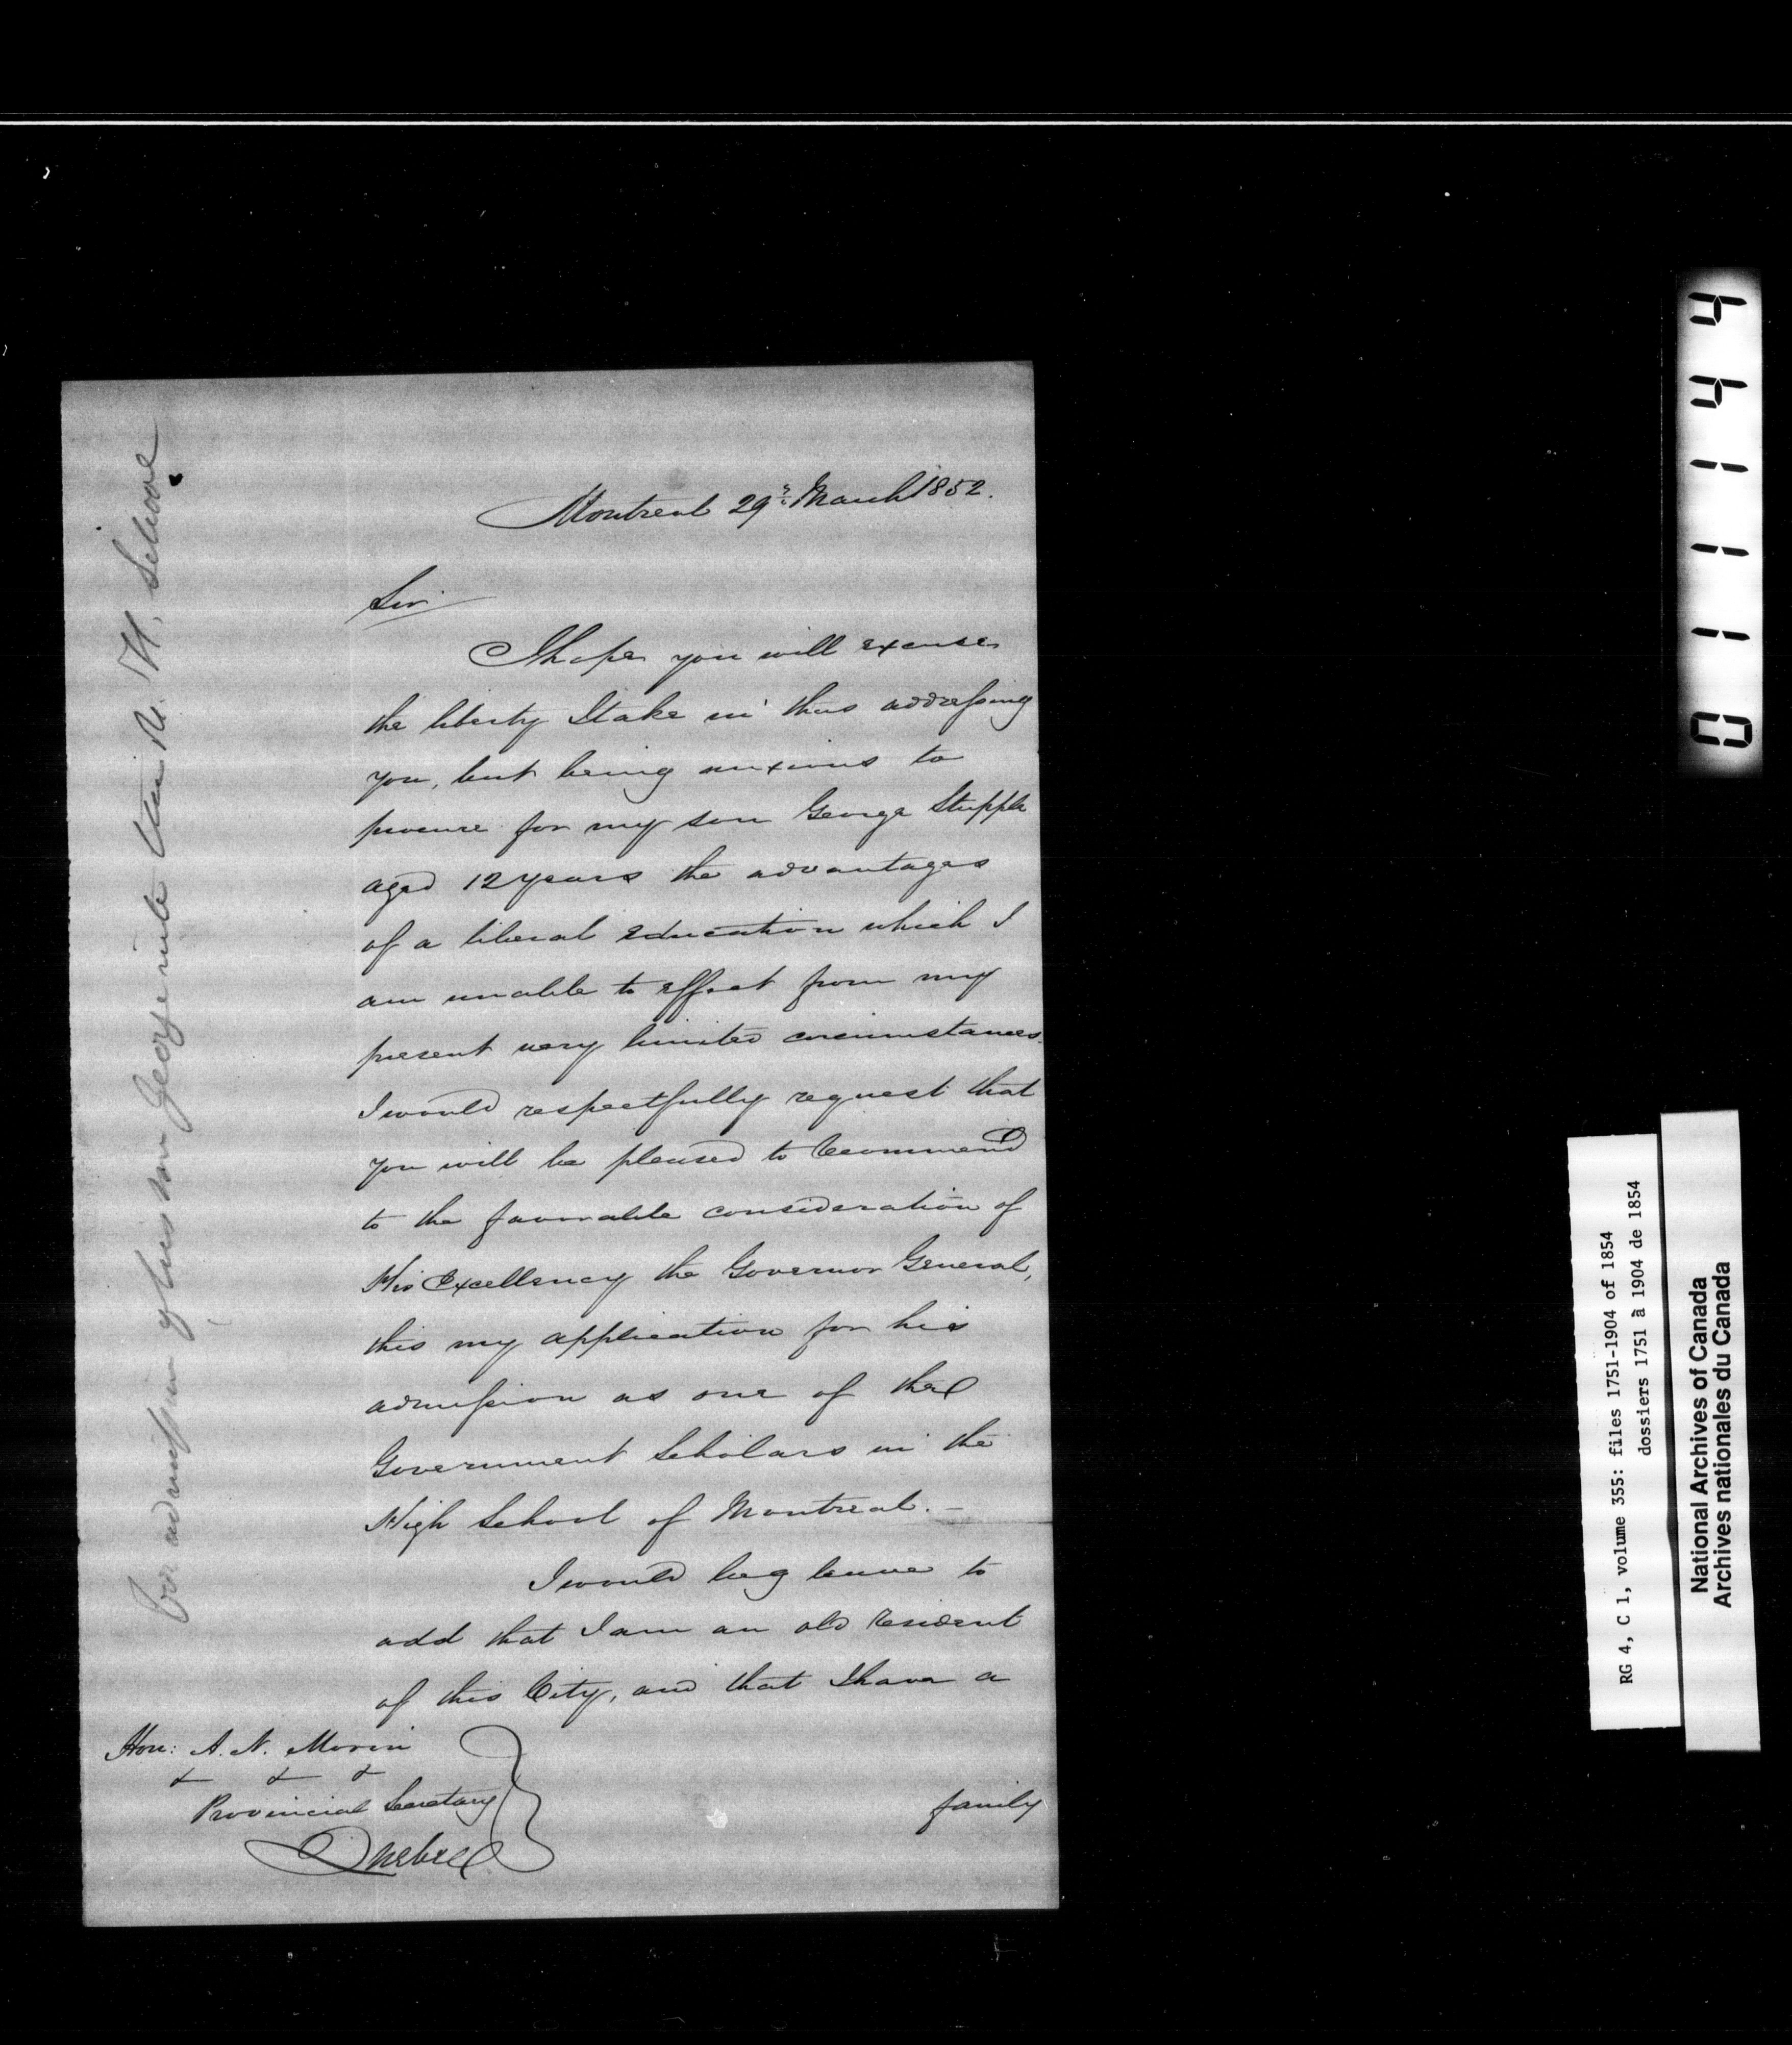 Montreal 29th March 1852.
Sir
I hope you will excuse
the liberty I take in thus addressing
you, but being anxious to
procure for my son George Stuppel
aged 12 years the advantages
of a liberal education which I
am unable to effect from my
present very limited circumstances.
I would respectfully request that
you will be pleased to recommend
to the favorable consideration of
His Excellency the Governor General,
this my application for his
admission as one of the
Government Scholars in the
High School of Montreal. —
I would beg leave to
add that I am an old resident
of this City, and that I have a
family
Hon: A. N. Morin
& & &
Provincial Secretary
Quebec
For admission of his son George into the H. School
01144
RG 4, C 1, volume 355: files 1751-1904 of 1854
dossiers 1751 à 1904 de 1854
National Archives of Canada
Archives nationales du Canada